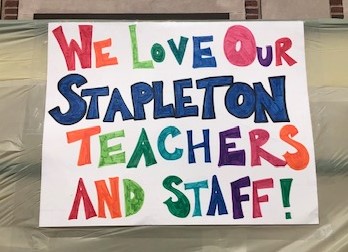 WE LOVE OUR
STAPLETON
TEACHERS
AND STAFF!